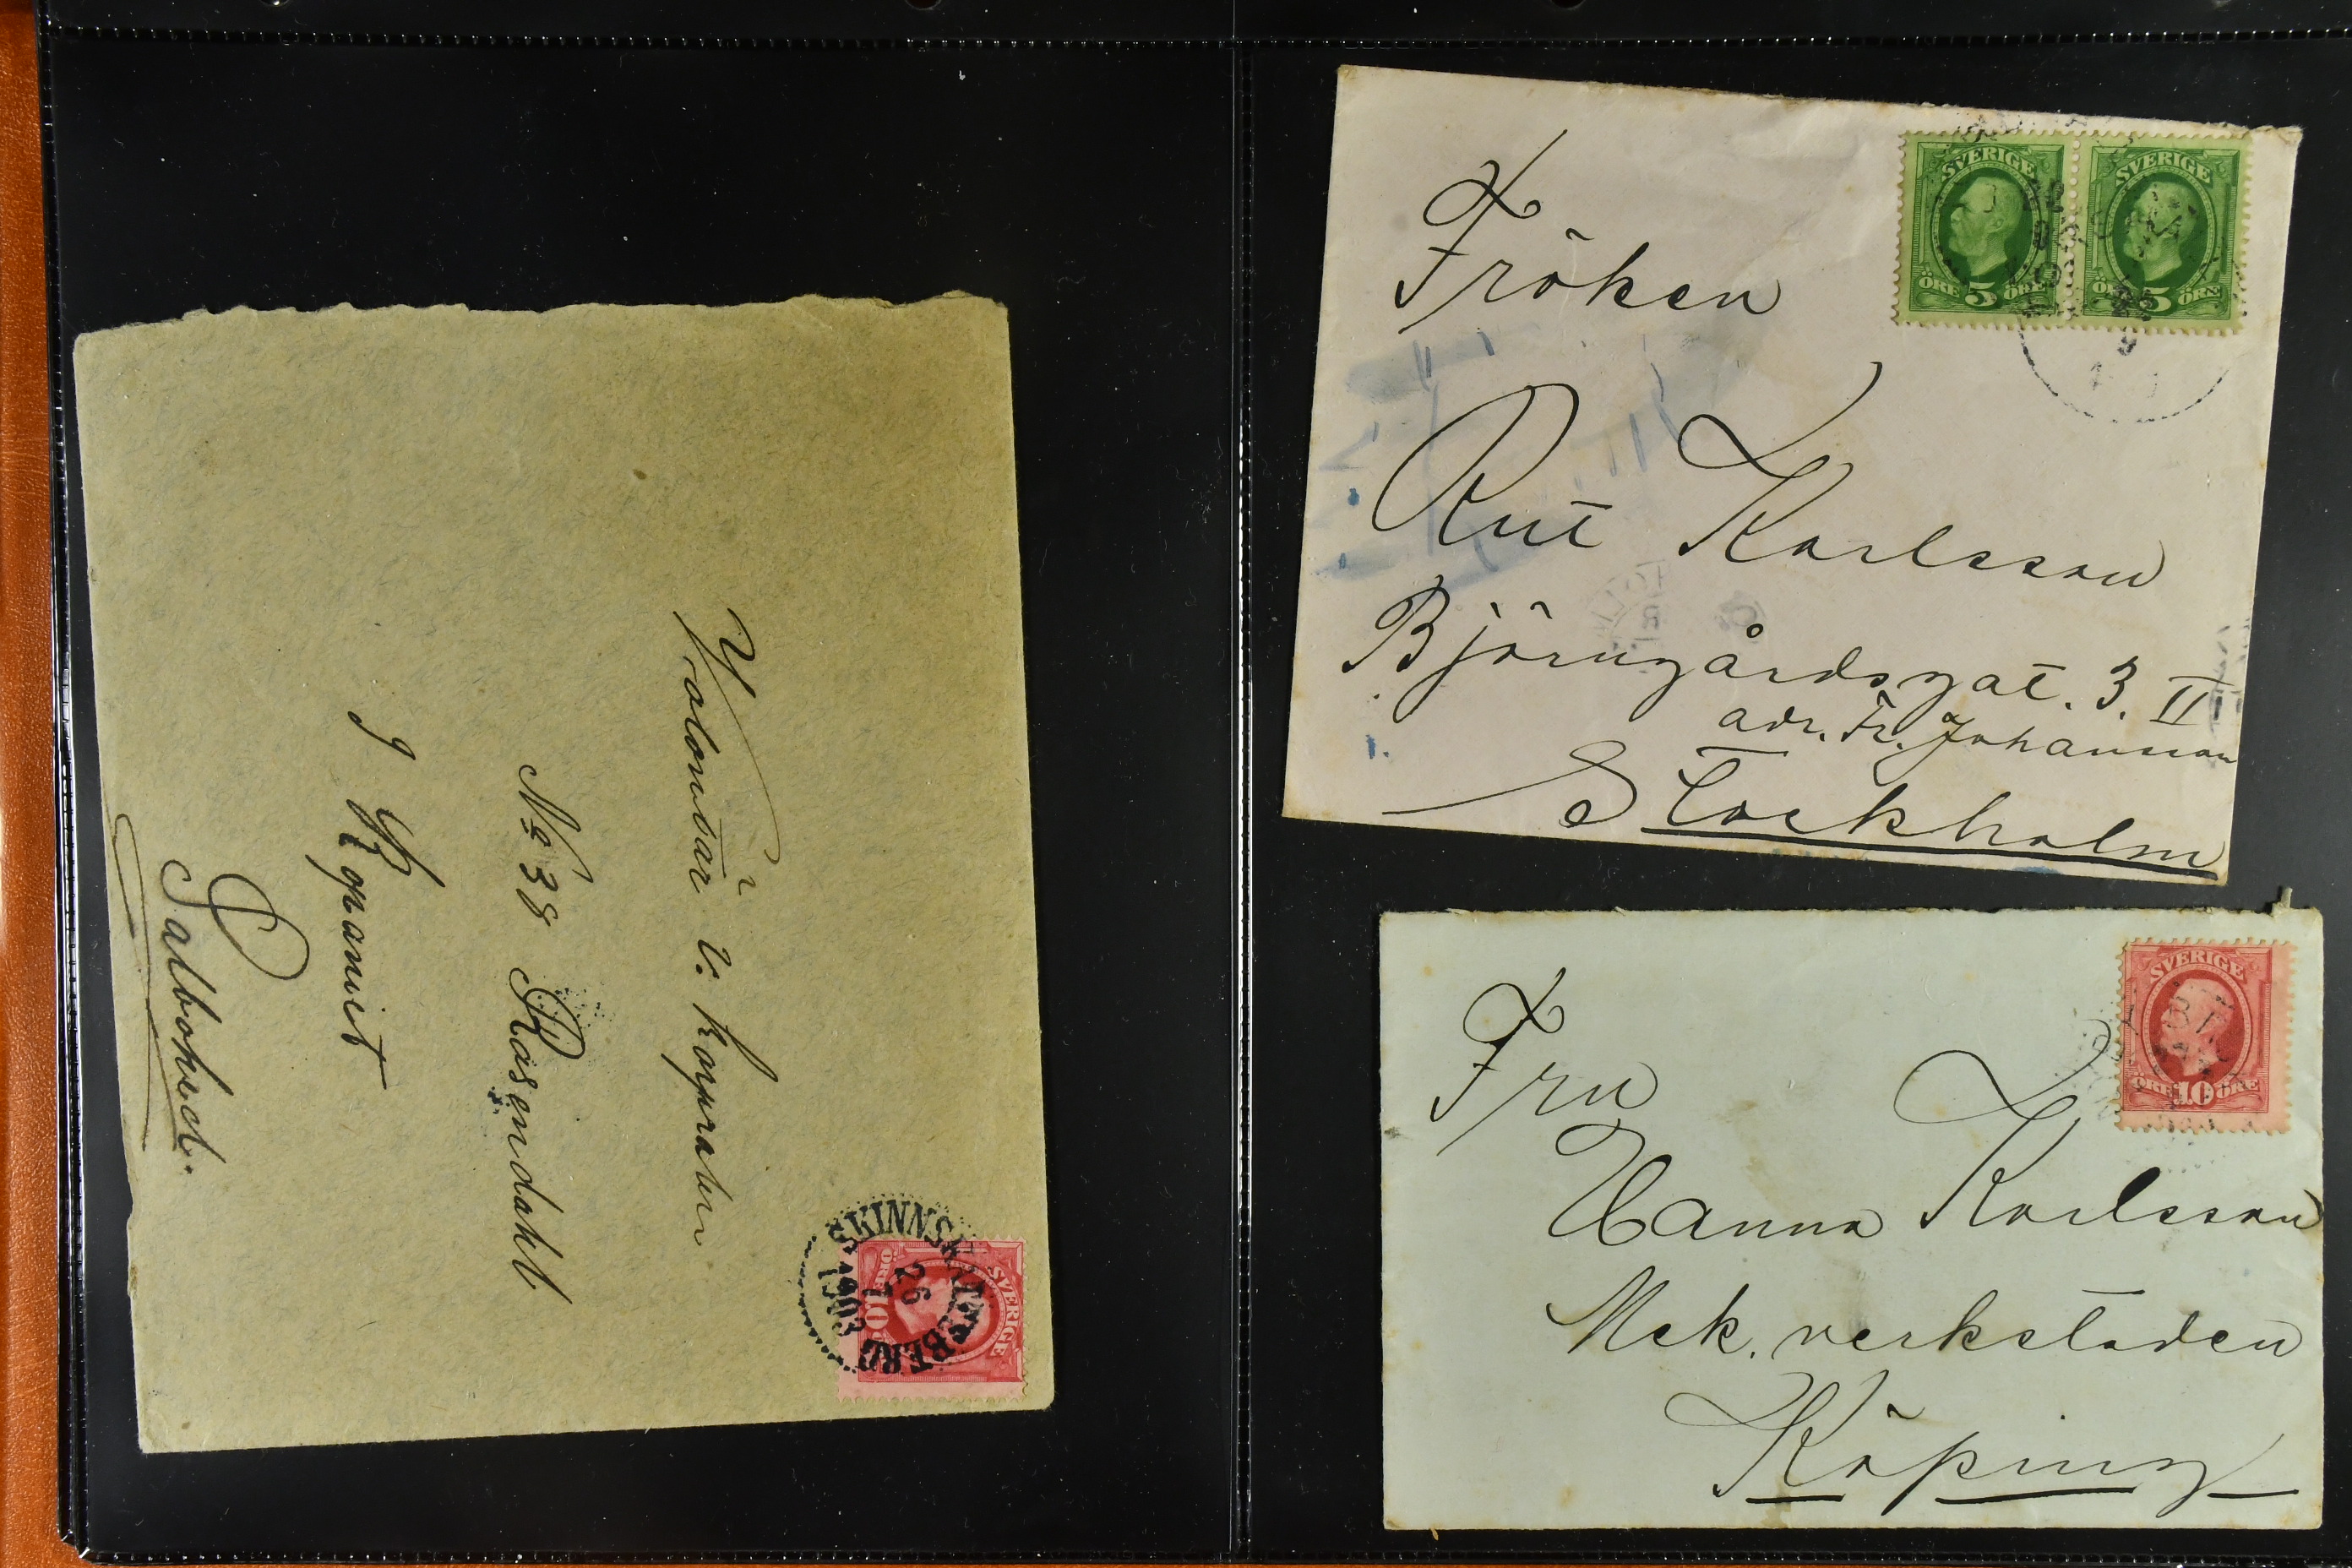 Volontär v. korpralen
No 38 Rosendahl
I Kompaniet
Salbohed.
SKINNSKATTEBERG
26
7
1903
SVERIGE
ÖRE 10 ÖRE
Fröken
Rut Karlsson
Björngårdsgat. 3. II
adr. Fr. Johansson
Stockholm
SVERIGE
ÖRE 5 ÖRE
SVERIGE
5 ÖRE
Fru
Hanna Karlsson
Mek. verkstaden
Köping
SVERIGE
ÖRE 10 ÖRE